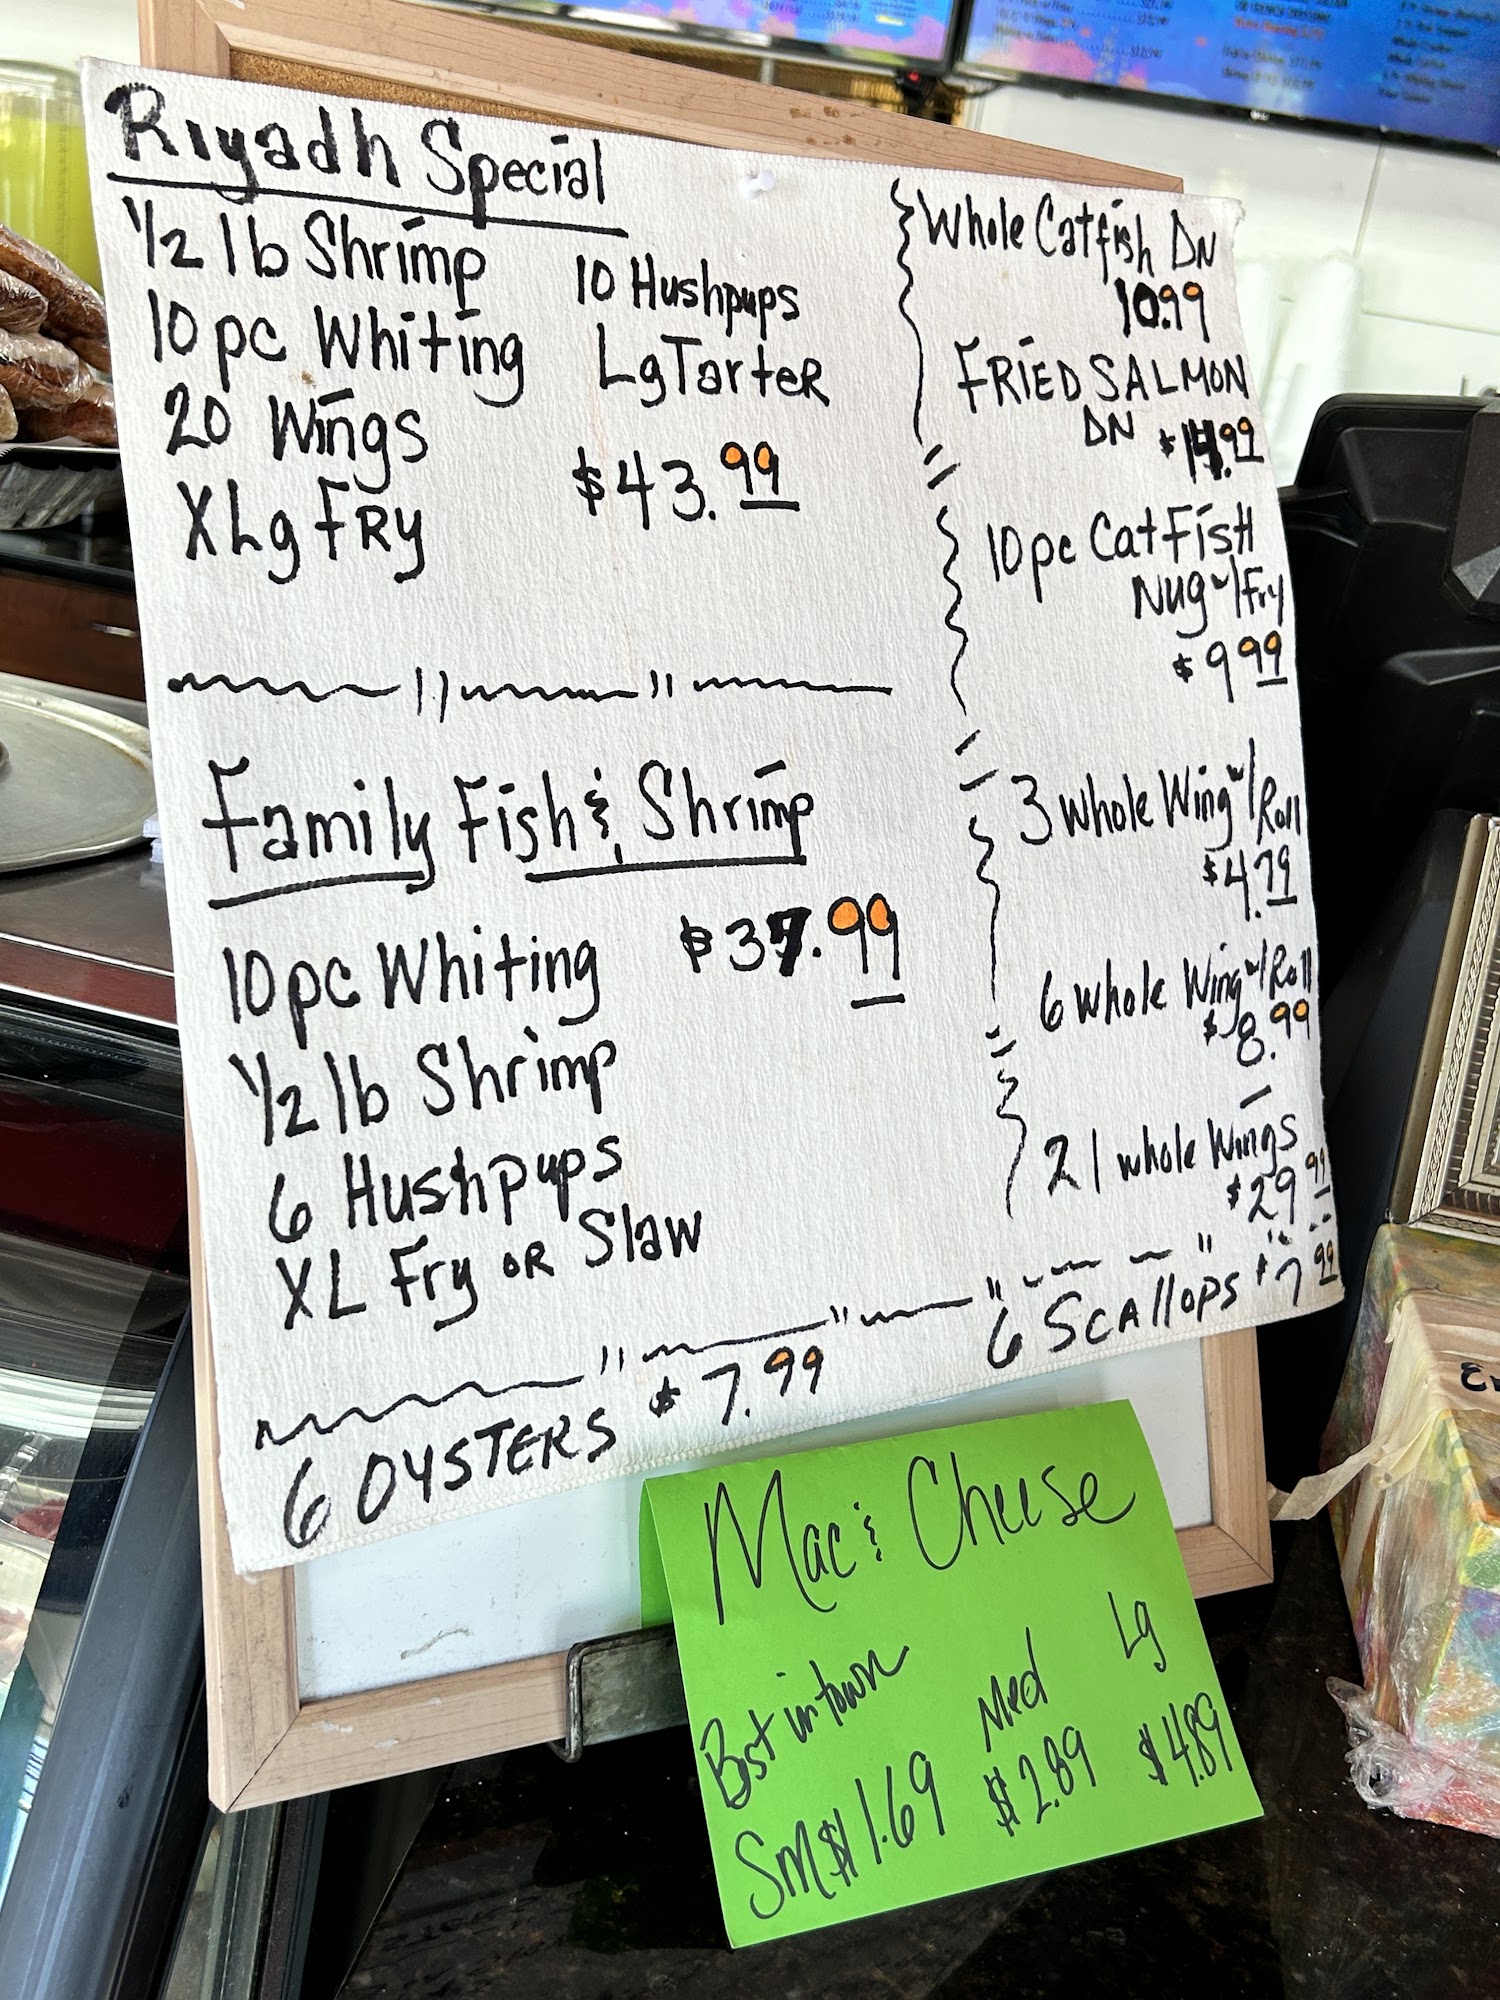 Riyadh Special
1/2 lb Shrimp
10 pc Whiting
20 Wings
XLg FRY
10 Hushpups
Lg TarteR
$43.99
Family Fish & Shrimp
10 pc Whiting $37.99
1/2 lb Shrimp
6 Hushpups
XL Fry OR Slaw
Whole Catfish DN
10.99
FRIED SALMON
DN $11.99
10 pc CatFish
Nug w/Fry
$9.99
3 whole Wing w/Roll
$4.79
6 whole Wing w/Roll
$8.99
21 whole Wings
$29.99
6 OYSTERS $7.99
6 SCAllOPS $7.99
Mac & Cheese
Best in town
Sm $1.69
Med
$2.89
Lg
$4.89